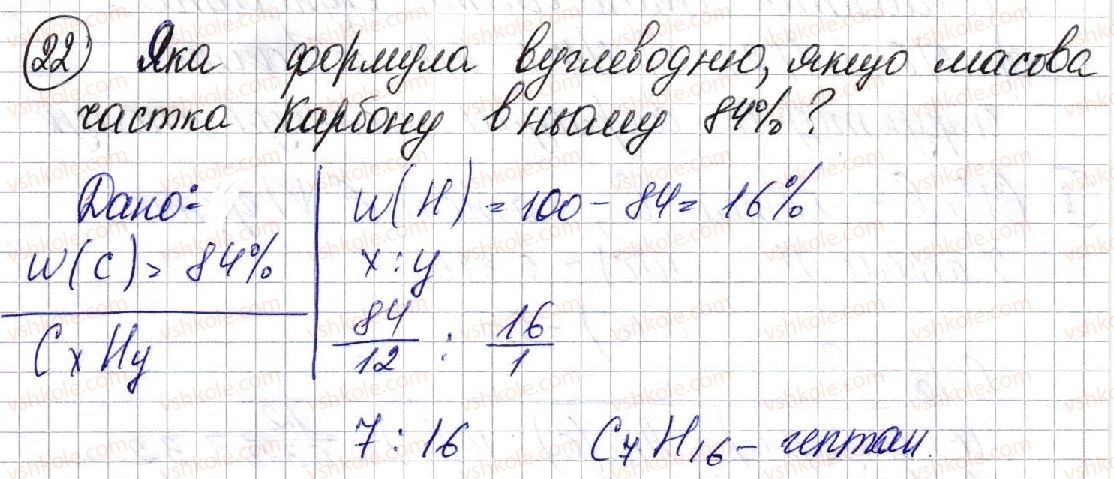 22) Яка формула вуглеводню, якщо масова
частка Карбону в ньому 84%?
Дано:
W(C) = 84%
CxHy
W(H) = 100 - 84 = 16%
x : y
84/12 : 16/1
7 : 16
C7H16 - гептан.
vshkole.com